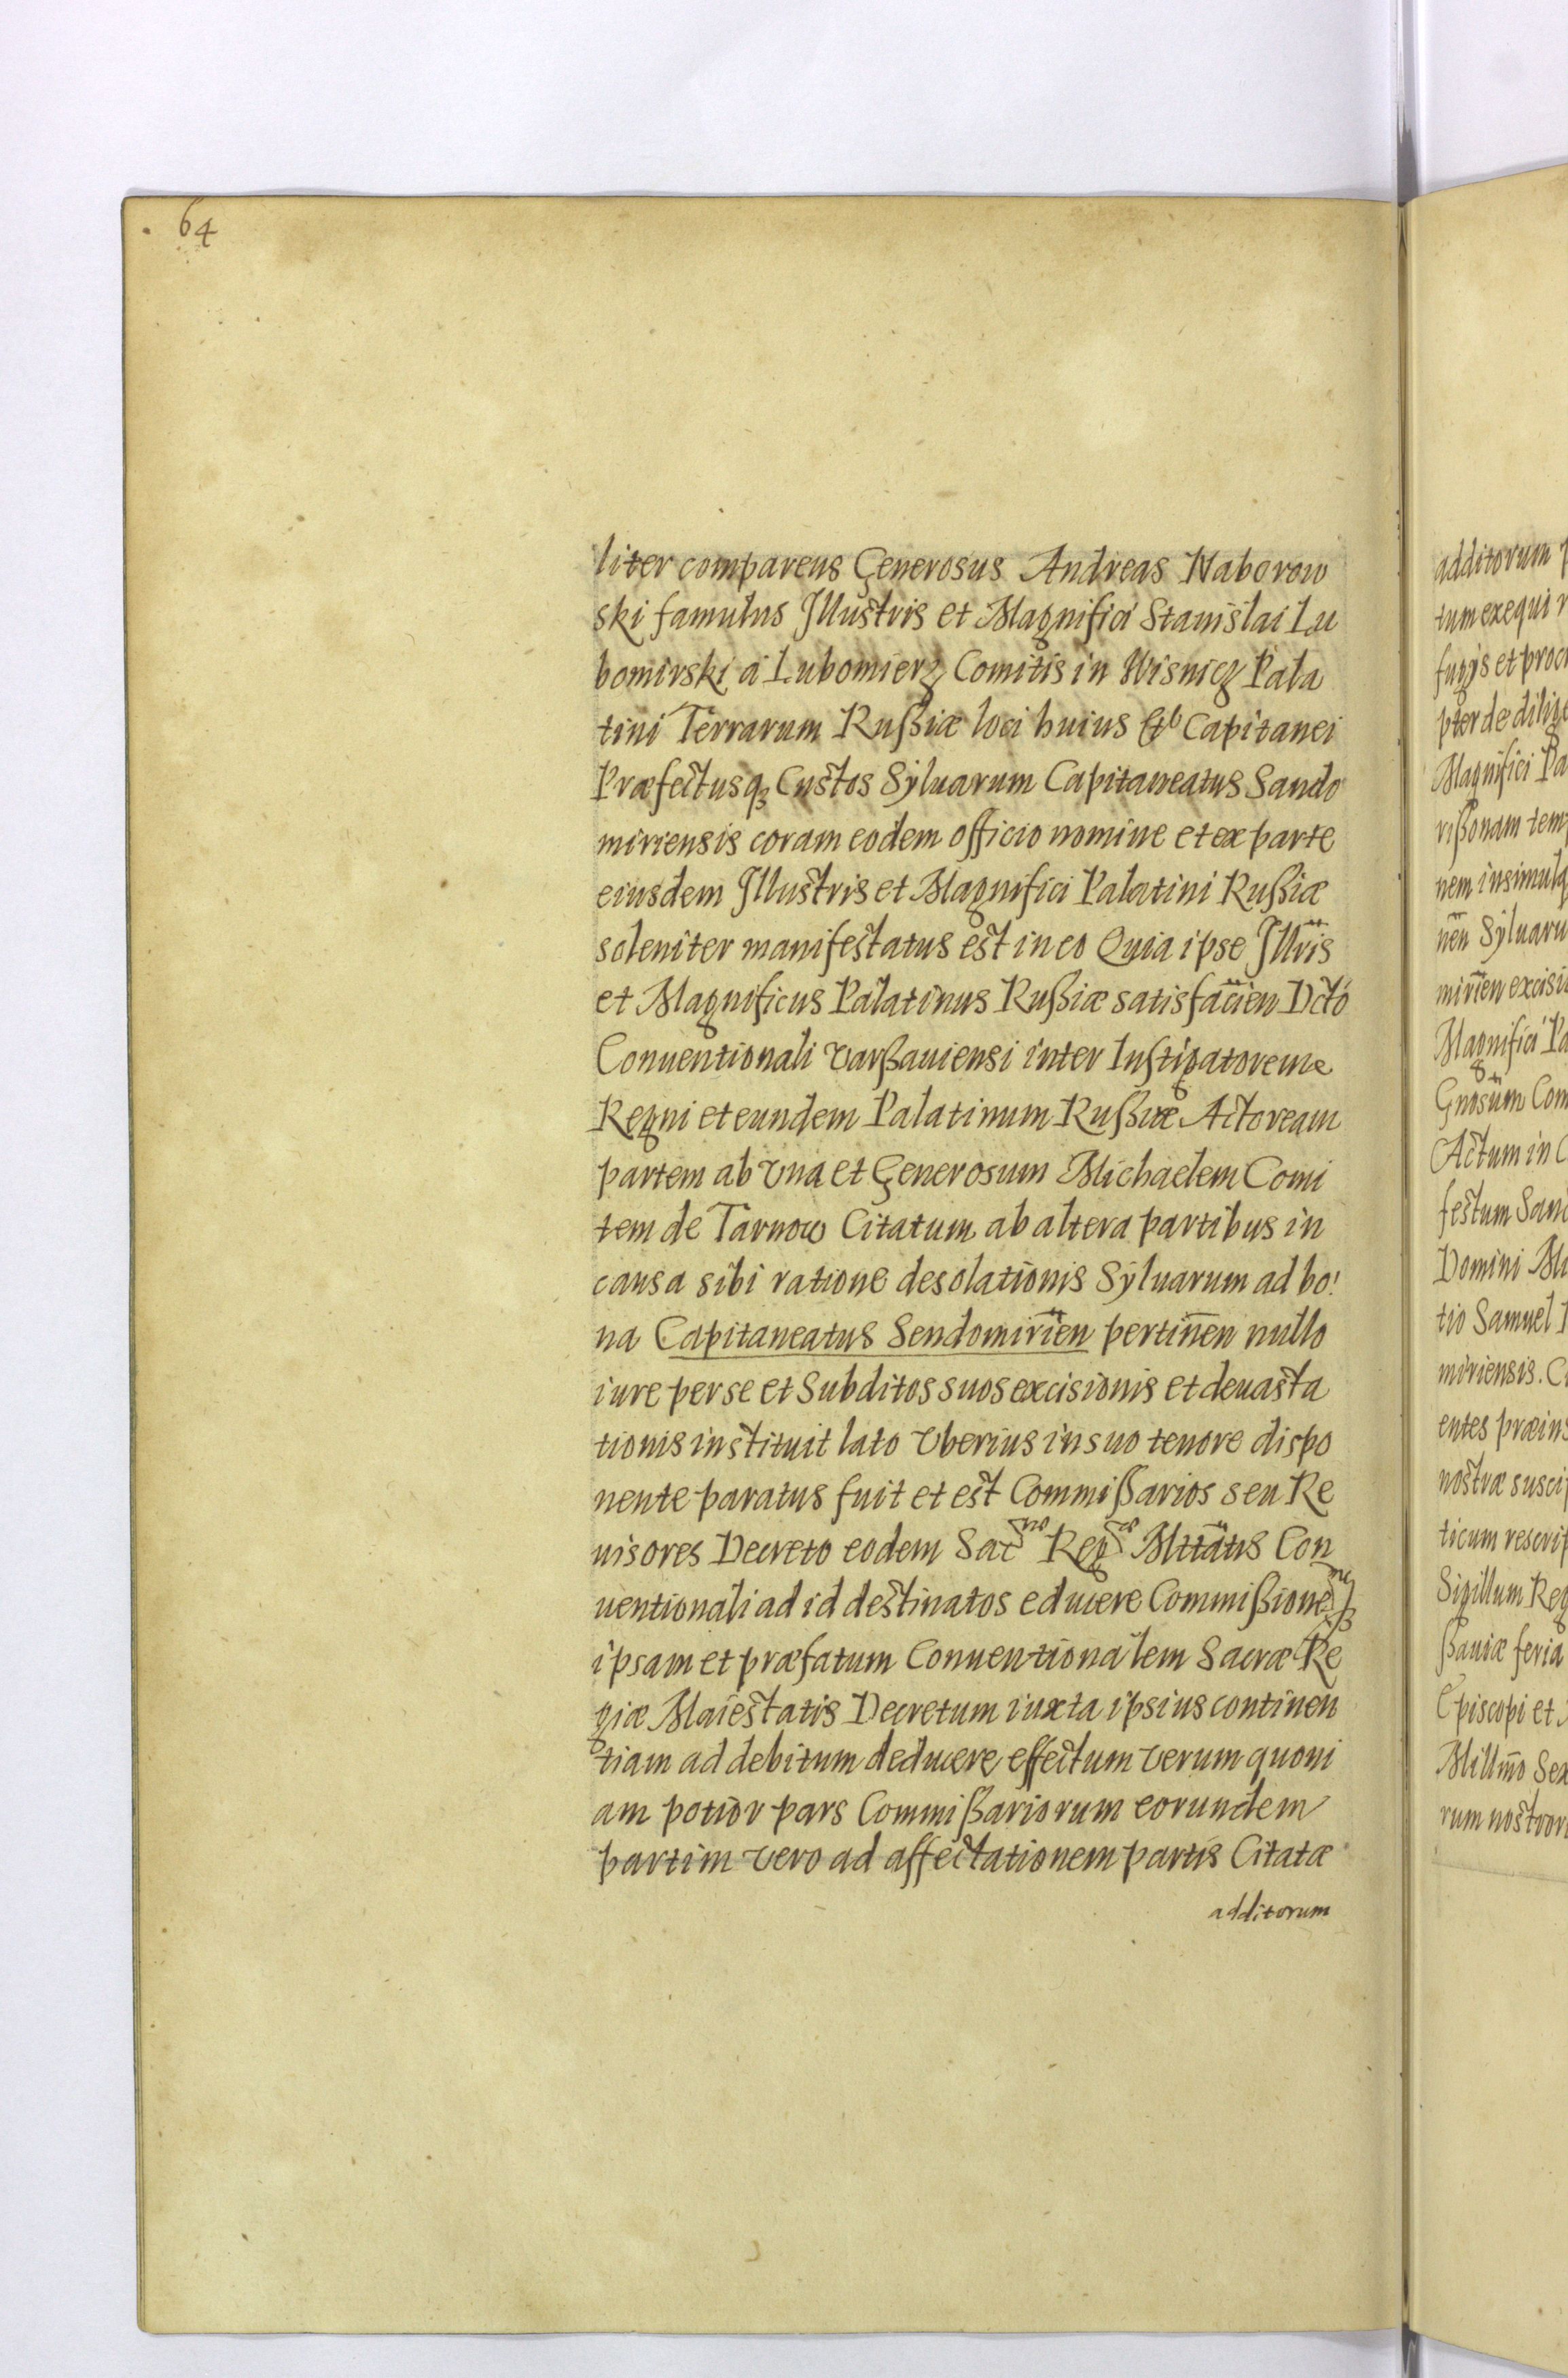 64
liter comparens Generosus Andreas Naborow
ski famulus Illustris et Magnifici Stanislai Lu
bomirski a Lubomierz Comitis in Wisnicz Pala
tini Terrarum Rußiæ loci huius Etc Capitanei
Præfectusqz Custos Syluarum Capitaneatus Sando
miriensis coram eodem officio nomine et ex parte
eiusdem Illustris et Magnifici Palatini Rußiæ
soleniter manifestatus est in eo Quia ipse Illris
et Magnificus Palatinus Rußiæ satisfacien Dcto
Conuentionali Varßauiensi inter Instigatorem
Regni et eundem Palatinum Rußiæ Actoream
partem ab Vna et Generosum Michaelem Comi
tem de Tarnow Citatum ab altera partibus in
causa sibi ratione desolationis Syluarum ad bo
na Capitaneatus Sendomirien pertinen nullo
iure per se et Subditos suos excisionis et deuasta
tionis instituit lato Vberius in suo tenore dispo
nente paratus fuit et est Commißarios seu Re
uisores Decreto eodem Sac Reg Mttatis Con
uentionali ad id destinatos educere Commißione
ipsam et præfatum Conuentionalem Sacræ Re
giæ Maiestatis Decretum iuxta ipsius continen
tiam ad debitum deducere effectum verum quoni
am potior pars Commißariorum eorundem
partim vero ad affectationem partis Citatæ
additorum
additorum
tum exequi
fugijs et proc
pter de dilig
Magnifici Pa
rißonam tem
nem insimulq
nen Syluaru
mirien excisi
Magnifici Pa
Gnosum Com
Actum in C
festum Sanc
Domini Mi
tio Samuel
miriensis. C
entes præins
nostræ suscip
ticum rescrip
Sigillum Reg
ßauiæ feria
Episcopi et
Millmo Sex
rum nostror